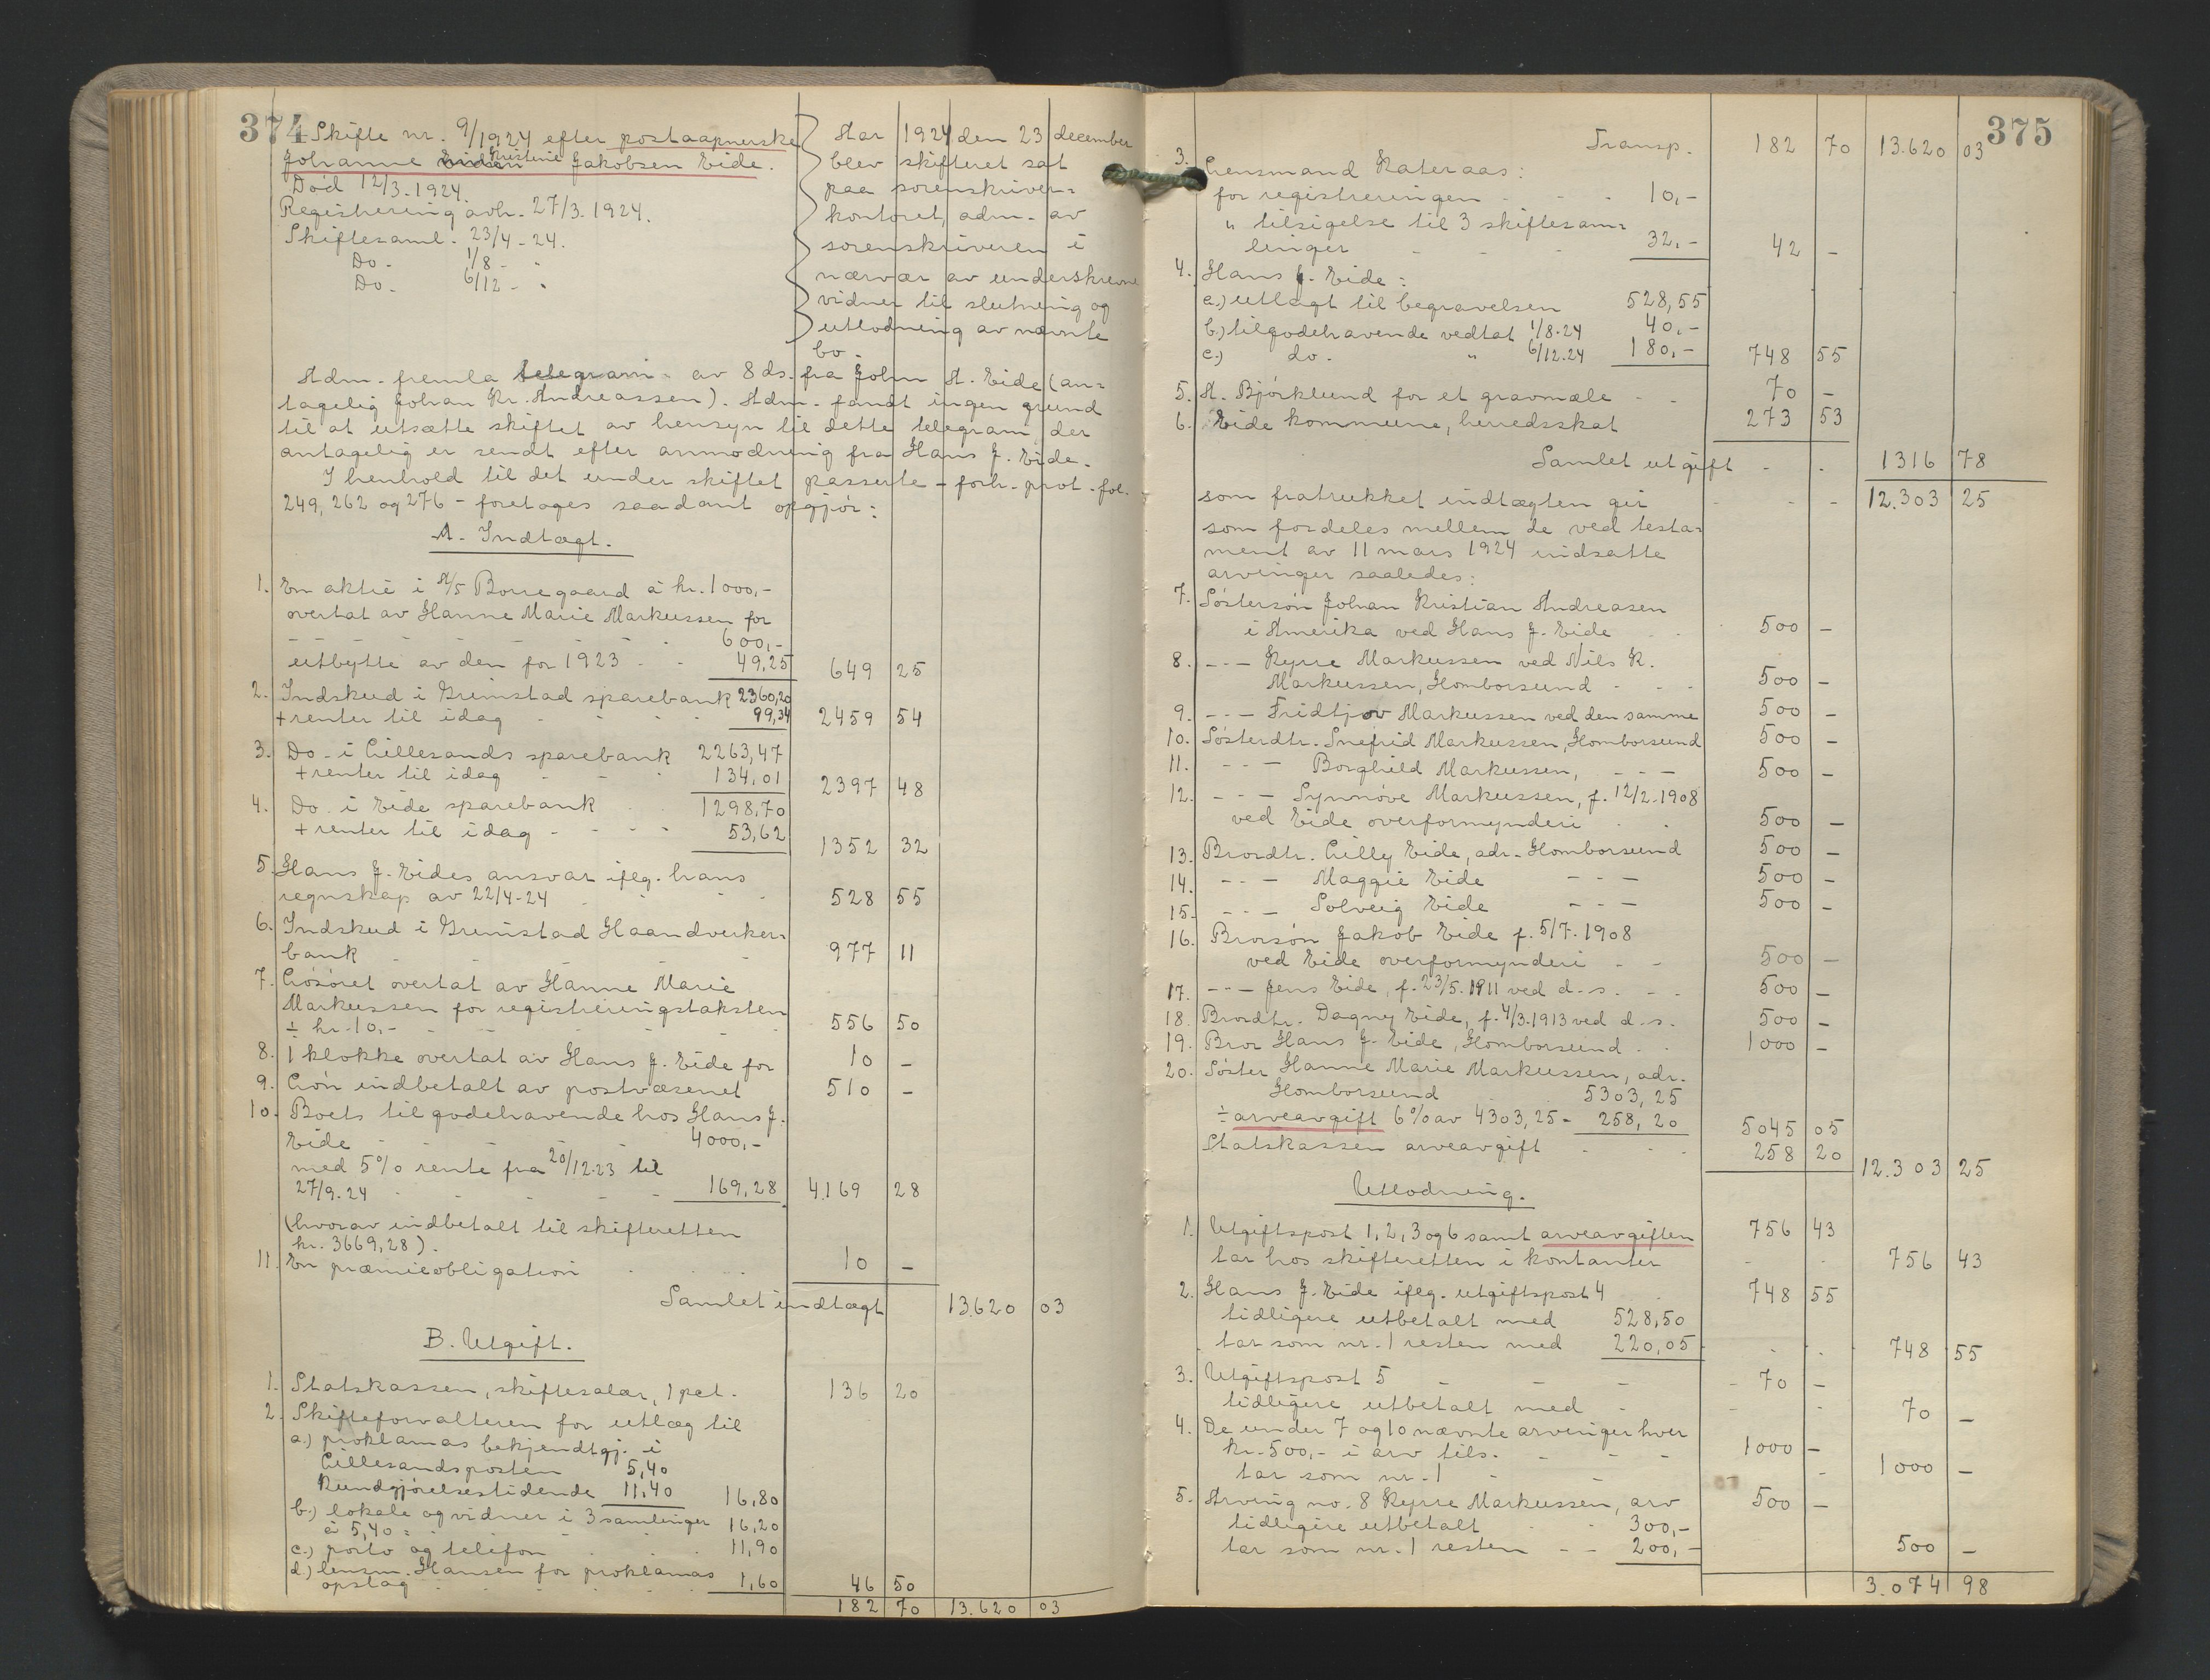 374
Skifte nr. 9/1924 efter postaapnerske
Johanne Kristenie Jakobsen Eide.
Død 12/3-1924.
Registrering avh. 27/3.1924.
Skiftesaml. 23/4-24.
Do- 1/8 - "
Do- 6/12 - "
Aar 1924 den 23 december
blev skifteret sat
paa sorenskriver-
kontoret, adm. av
sorenskriveren i
nærvær av underskrevne
vidner til slutning og
utlodning av nævnte
bo.
Adm. fremla telegram av 8 ds. fra John A. Eide (an-
tagelig Johan Kr. Andreassen). Adm. fandt ingen grund
til at utsætte skiftet av hensyn til dette telegram, der
antagelig er sendt efter anmodning fra Hans J. Eide.
I henhold til det under skiftet passerte - forh. prot. fol.
249, 262 og 276 - foretages saadant opgjør:
A. Indtægt.
1. En aktie i A/S Borregaard à kr. 1000,-
overtat av Hanne Marie Markussen for
- - - - - - 600,-
utbytte av den for 1923 - - 49,25 649 25
2. Indskud i Grimstad sparebank 2360,20
+ renter til idag - - - 99,34 2459 54
3. Do - i Lillesands sparebank 2263,47
+ renter til idag - - - 134,01 2397 48
4. Do. i Eide sparebank - - 1298,70
+ renter til idag - - - - 53,62 1352 32
5. Hans J. Eides ansvar ifølg. hans
regnskap av 22/4-24 - - - 528 55
6. Indskud i Grimstad Haandverker-
bank - - - - - 977 11
7. Løsøret overtat av Hanne Marie
Markussen for registreringstaksten
÷ kr. 10,- - - - - - 556 50
8. 1 klokke overtat av Hans J. Eide for 10 -
9. Løn indbetalt av postvæsenet 510 -
10. Boets tilgodehavende hos Hans J.
Eide - - - - 4000,-
med 5% rente fra 20/12-23 til
27/9-24 - - - - - 169,28 4.169 28
(hvorav indbetalt til skifteretten
kr. 3669,28).
11. En præmieobligation - - - 10 -
Samlet indtægt 13.620 03
B. Utgift.
1. Statskassen, skiftesalær, 1 pct. 136 20
2. Skifteforvalteren for utlæg til
a.) proklamas bekjendtgj. i
Lillesandsposten 5,40
Kundgjørelsestidende 11,40 16,80
b.) lokale og vidner i 3 samlinger
à 5,40 = - - - - 16,20
c.) porto og telefon - - - 11,90
d.) lensm. Hansen for proklamas
opslag - - - - - 1,60 46 50
182 70 13.620 03
375
Transp. 182 70 13.620 03
3. Lensmand Kateraas:
for registreringen - - - 10,-
" tilsigelse til 3 skiftesam-
linger - - - 32,- 42 -
4. Hans J. Eide:
a.) utlagt til begravelsen 528,55
b.) tilgodehavende vedtat 1/8-24 40,-
c.) do. " 6/12.24 180,- 748 55
5. A. Bjørklund for et gravmæle - - 70 -
6. Eide kommune, herredsskat 273 53
Samlet utgift - - 1316 78
som fratrukket indtægten gir - - - 12.303 25
som fordeles mellem de ved testa-
ment av 11 mars 1924 indsatte
arvinger saaledes:
7. Søstersøn Johan Kristian Andreasen
i Amerika ved Hans J. Eide - - 500 -
8. - - - Kyrre Markussen ved Nils K.
Markussen, Homborsund - - - 500 -
9. - - - Fridtjov Markussen ved den samme 500 -
10. Søsterdtr. Snefrid Markussen, Homborsund 500 -
11. - - - Borghild Markussen, - - - 500 -
12. - - - Synnøve Markussen, f. 12/2-1908
ved Eide overformynderi - - 500 -
13. Brordtr. Lilly Eide, adr. Homborsund 500 -
14. - - - Maggie Eide - - - 500 -
15. - - - Solveig Eide - - - 500 -
16. Brorsøn Jakob Eide f. 5/7.1908
ved Eide overformynderi - - 500 -
17. - - - Jens Eide, f. 23/5.1911 ved d.s. - - 500 -
18. Brordtr. Dagny Eide, f. 4/3.1913 ved d.s. 500 -
19. Bror Hans J. Eide, Homborsund - - 1000 -
20. Søster Hanne Marie Markussen, adr.
Homborsund 5303,25
÷ arveavgift 6% av 4303,25 = 258,20 5045 05
Statskassen arveavgift - - - 258 20 12.303 25
Utlodning.
1. Utgiftspost 1, 2, 3 og 6 samt arveavgiften 756 43
tar hos skifteretten i kontanter - - 756 43
2. Hans J. Eide ifølg. utgiftspost 4 748 55
tidligere utbetalt med 528,50
tar som nr. 1 resten med 220,05 - - 748 55
3. Utgiftspost 5 - - - 70 -
tidligere utbetalt med - - - 70 -
4. De under 7 og 10 nævnte arvinger hver
kr. 500,- i arv tils. - - - 1000 -
tar som nr. 1 - - - 1000 -
5. Arving no. 8 Kyrre Markussen, arv 500 -
tidligere utbetalt - - 300,-
tar som nr. 1 resten - - 200,- 500 -
3.074 98